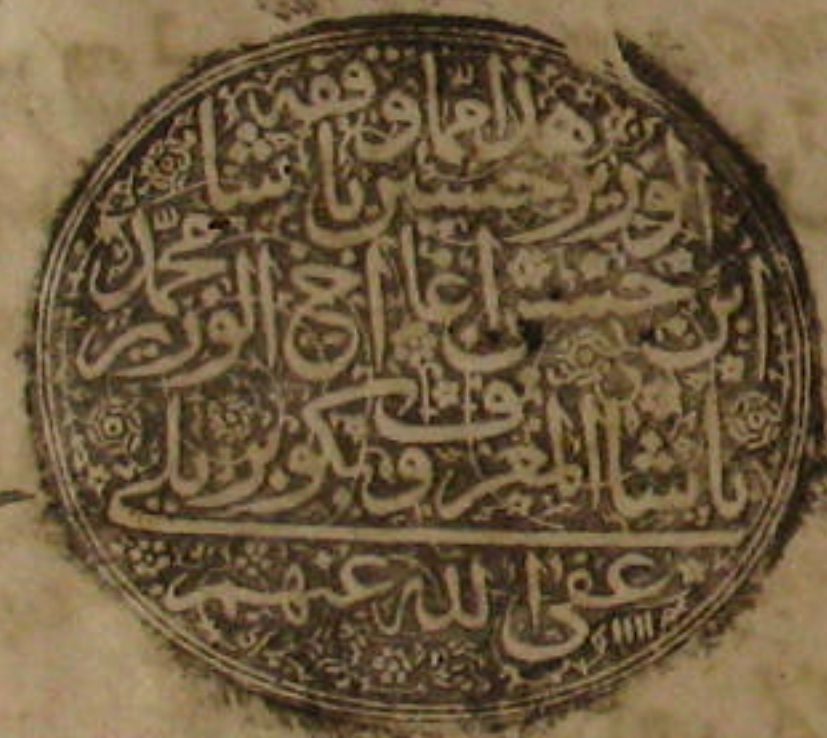 هذا مما وقفه
الوزير حسين باشا
ابن حسن اغا اخ الوزير محمد
باشا المعروف بكوبريلى
عفى الله عنهم
١١١١